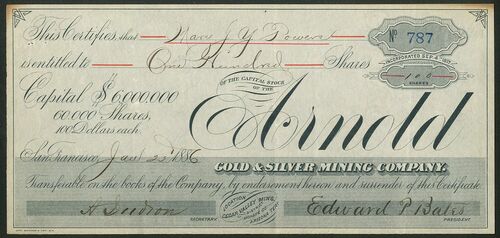 This Certifies, that Mary J. Y. Powers
Nº 787
is entitled to One Hundred Shares
INCORPORATED SEP. 4
100
SHARES
OF THE CAPITAL STOCK
OF THE
Capital $6,000,000
60,000 Shares,
100 Dollars each.
Arnold
San Francisco, Jan 1886
GOLD & SILVER MINING COMPANY
Transferable on the books of the Company, by endorsement hereon and surrender of this Certificate
LOCATION
CEDAR VALLEY MINING
ARIZONA TERY
SECRETARY
Edward P. Bates
PRESIDENT.